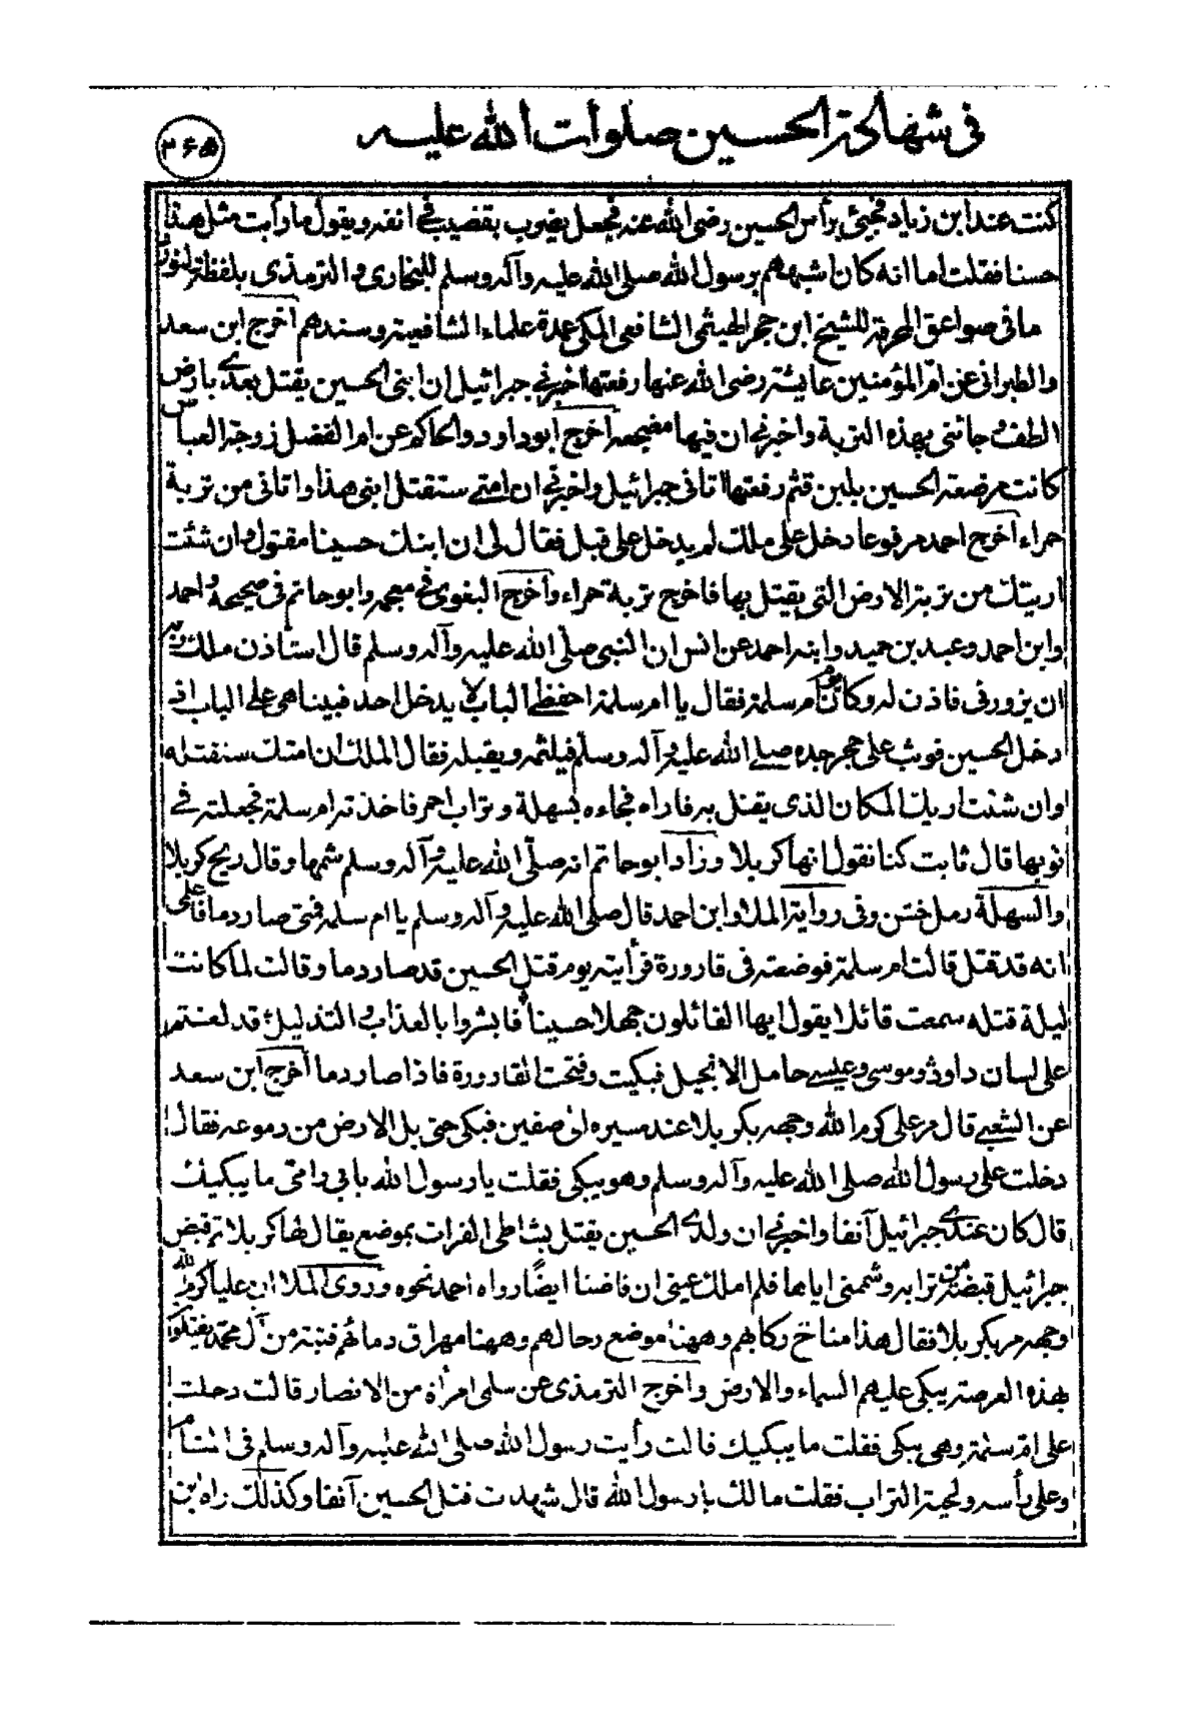 في شهادة الحسين صلوات الله عليه
٣٦٥
كنت عند ابن زياد فجيئ برأس الحسين رضى الله عنه فجعل يضرب بقضيب في انفه ويقول ما رأيت مثل هذا
حسنا فقلت اما انه كان اشبههم برسول الله صلى الله عليه وآله وسلم للبخارى والترمذى بلفظه
ما في صواعق المحرقة للشيخ ابن حجر الهيثمى الشافعى المكى عدة علماء الشافعية وسندهم أخرج ابن سعد
والطبرانى عن ام المؤمنين عايشة رضى الله عنها رفعتها اخبرني جبرائيل ان ابنى الحسين يقتل بعدي بارض
الطف وجائنى بهذه التربة واخبرني ان فيها مضجعه أخرج ابو داود والحاكم عن ام الفضل زوجة العباس
كانت مرضعة الحسين بلبن قثم رفعتها اتانى جبرائيل واخبرني ان امتي ستقتل ابنى هذا واتانى من تربة
حمراء أخرج احمد مرفوعا دخل على ملك لم يدخل على قبل فقال لى ان ابنك حسينا مقتول وان شئت
اريتك من تربة الارض التى يقتل بها فاخرج تربة حمراء وأخرج البغوى في معجمه وابو حاتم في صحيحه واحمد
وابن احمد وعبد بن حميد وابنه احمد عن انس ان النبى صلى الله عليه وآله وسلم قال استاذن ملك ربه
ان يزورنى فاذن له وكان يوم ام سلمة فقال يا ام سلمة احفظي الباب لا يدخل احد فبينا هى على الباب اذ
دخل الحسين فوثب على حجر جده صلى الله عليه وآله وسلم فيلثمه ويقبله فقال الملك ان امتك ستقتله
وان شئت اريك المكان الذى يقتل به فاراه فجاءه بسهلة وتراب احمر فاخذته ام سلمة فجعلته في
ثوبها قال ثابت كنا نقول انها كربلا وزاد ابو حاتم انه صلى الله عليه وآله وسلم شمها وقال ريح كربلا
والسهلة رمل خشن وفى رواية الملا وابن احمد قال صلى الله عليه وآله وسلم يا ام سلمة فمتى صار دما فاعلمى
انه قد قتل قالت ام سلمة فوضعته فى قارورة فرأيته يوم قتل الحسين قد صار دما وقالت لما كانت
ليلة قتله سمعت قائلا يقول ايها القائلون جهلا حسينا فابشروا بالعذاب والتذليل قد لعنتم
على لسان داود وموسى وعيسى حامل الانجيل فبكيت وفتحت القارورة فاذا صار دما أخرج ابن سعد
عن الشعبي قال مر على كرم الله وجهه بكربلا عند مسيره الى صفين فبكى حتى بل الارض من دموعه فقال
دخلت على رسول الله صلى الله عليه وآله وسلم وهو يبكى فقلت يا رسول الله بابى وامى ما يبكيك
قال كان عندي جبرائيل آنفا واخبرني ان ولدي الحسين يقتل بشاطى الفرات بموضع يقال لها كربلا ثم قبض
جبرائيل قبضة من ترابه وشمنى اياها فلم املك عينى ان فاضنا ايضًا رواه احمد نحوه وروى الملا ان عليا كرم الله
وجهه مر بكربلا فقال هذا مناخ ركابهم وههنا موضع رحالهم وههنا مهراق دمائهم فتية من آل محمد يقتلون
بهذه العرصة يبكى عليهم السماء والارض وأخرج الترمذى عن سلمى امرأة من الانصار قالت دخلت
على ام سلمة وهى يبكى فقلت ما يبكيك قالت رأيت رسول الله صلى الله عليه وآله وسلم فى المنام
وعلى رأسه ولحيته التراب فقلت مالك يا رسول الله قال شهدت قتل الحسين آنفا وكذلك راه ابن